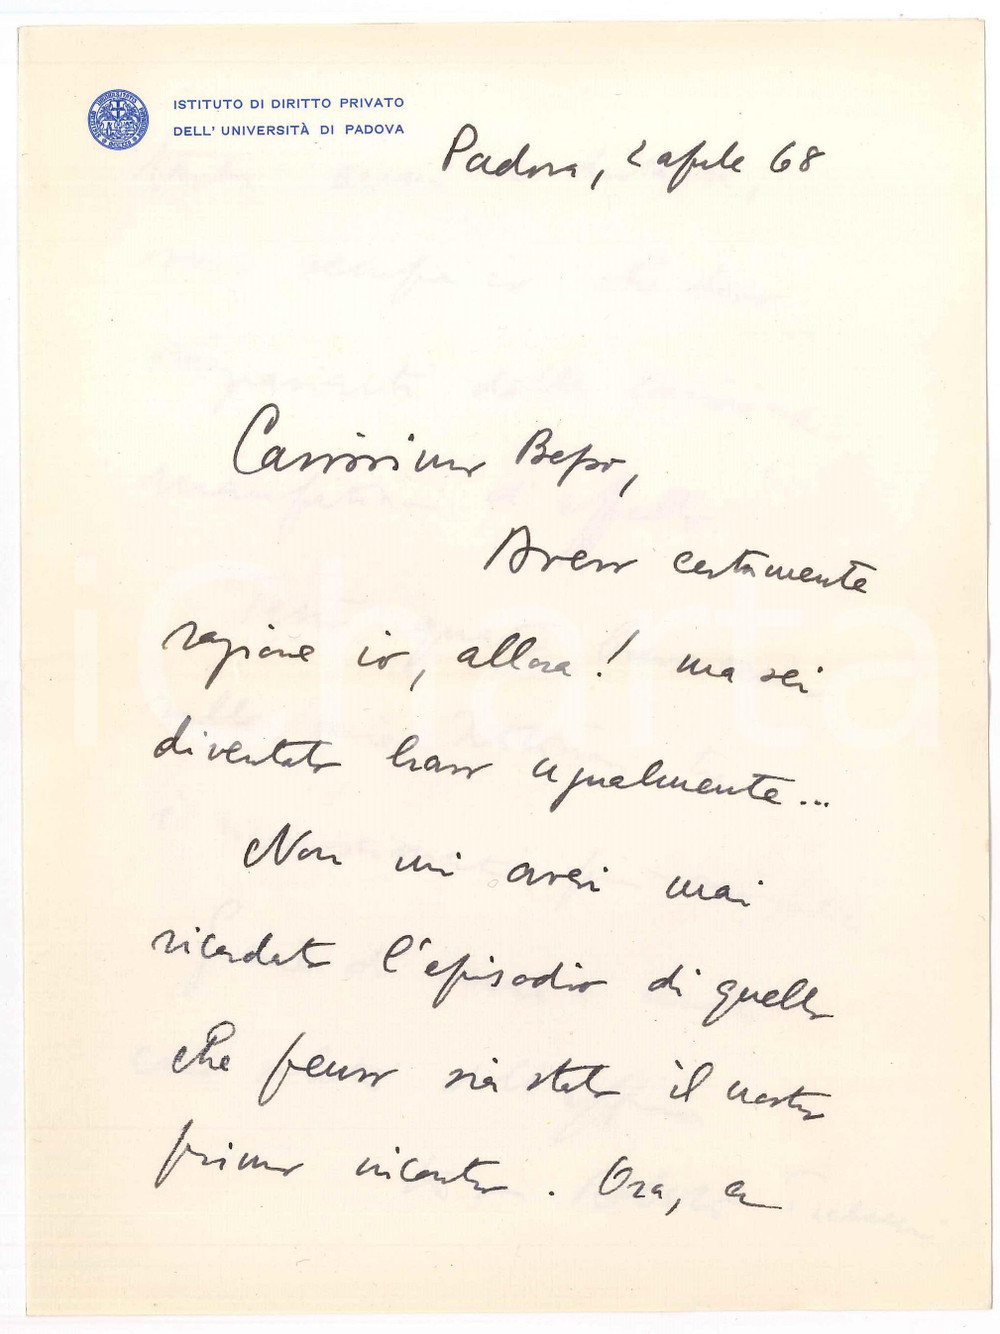 ISTITUTO DI DIRITTO PRIVATO
DELL' UNIVERSITÀ DI PADOVA
Padova, 2 aprile 68
Carissimo Bepo,
Avevo certamente
ragione io, allora! ma sei
diventato bravo ugualmente...
Non mi avevi mai
ricordato l'episodio di quello
che penso sia stato il nostro
primo incontro. Ora, a
iCharta